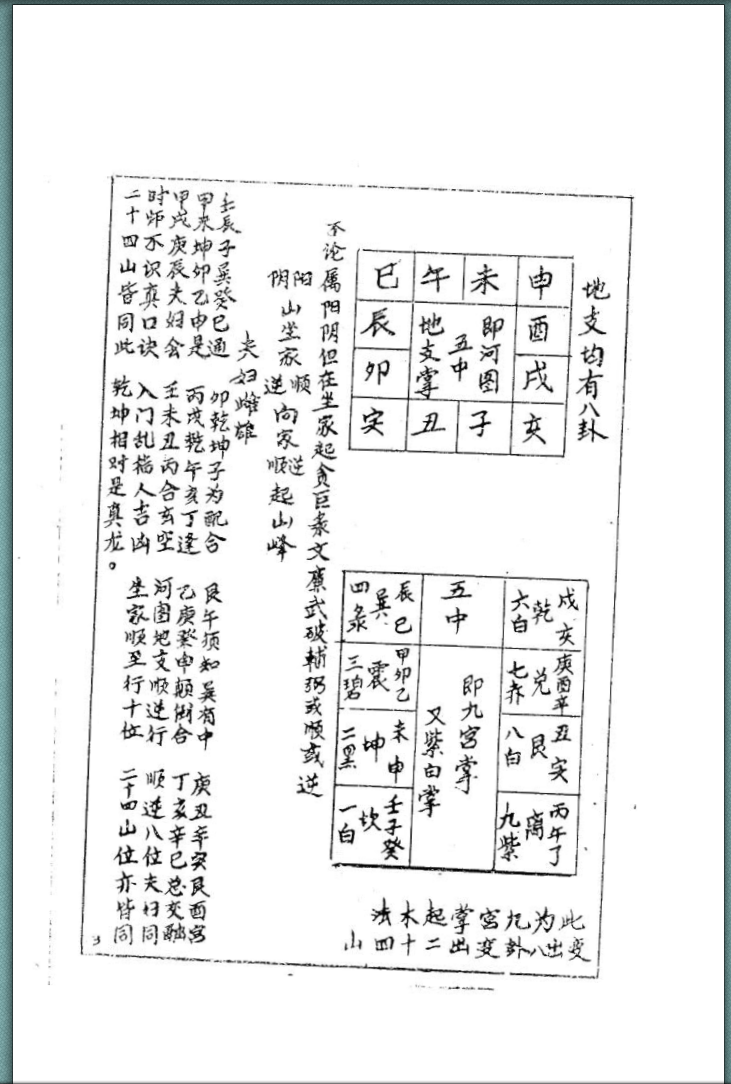 地支均有八卦
巳 午 未 申
辰 地支掌 五中 即河图 酉
卯 戌
寅 丑 子 亥
辰巳 巽 四彔
五中
戌亥 乾 六白
甲卯乙 震 三碧
庚酉辛 兑 七赤
未申 坤 二黑
丑寅 艮 八白
壬子癸 坎 一白
丙午丁 离 九紫
即九宫掌
又紫白掌
此变
为出
九八卦
宫变
掌出
起二
木十
法四
山
不论属阳阴但在坐家起贪巨彔文廉武破辅弼或顺或逆
阳 顺 逆
山坐家 向家 顺起山峰
阴 逆
夫妇雌雄
壬辰子巽癸巳通 卯乾坤子为配合 艮午须知巽宿中 庚丑辛寅艮酉宫
甲未坤卯乙申是 丙戌乾午亥丁逢 乙庚癸申颠倒合 丁亥辛巳总交融
甲戌庚辰夫妇会 壬未丑丙合玄空 河图地支顺逆行 顺逆八位夫妇同
时师不识真口诀 入门乱指人吉凶 坐家顺至行十位 二十四山位亦皆同
二十四山皆同此 乾坤相对是真龙。
3